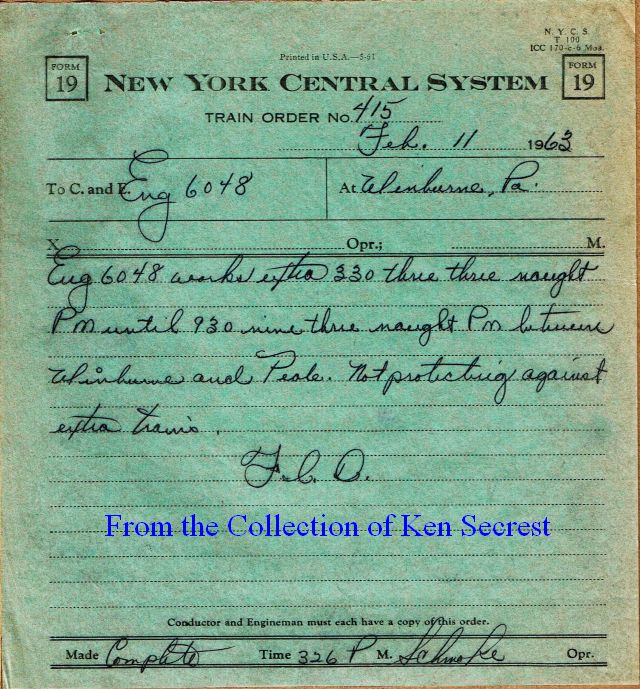 N.Y.C.S.
T 100
ICC 170-c-6 Mod.
Printed in U.S.A.—5-61
FORM 19
NEW YORK CENTRAL SYSTEM
FORM 19
TRAIN ORDER No. 415
Feb. 11 1963
To C. and E. Eng 6048
At Winburne, Pa.
X Opr.; M.
Eng 6048 works extra 330 three three naught
PM until 930 nine three naught PM between
Winburne and Peale. Not protecting against
extra trains.
F.C.D.
From the Collection of Ken Secrest
Conductor and Engineman must each have a copy of this order.
Made Complete Time 326 P M. Schmoke Opr.